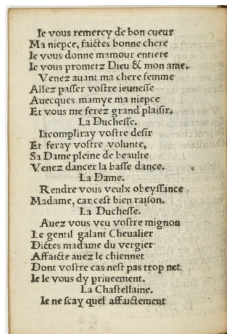 Ie vous remercy de bon cueur
Ma niepce, faictes bonne chere
Ie vous donne mamour entiere
Ie vous prometz Dieu & mon ame,
Venez auant ma chere femme
Allez passer vostre ieunesse
Auecques mamye ma niepce
Et vous me ferez grand plaisir.
La Duchesse.
Iacompliray vostre desir
Et feray vostre volunte,
Sa Dame pleine de beaulte
Venez dancer la basse dance.
La Dame.
Rendre vous veulx obeyssance
Madame, car cest bien raison.
La Duchesse.
Auez vous veu vostre mignon
Le gentil galant Cheualier
Dictes madame du vergier
Affaicte auez le chiennet
Dont vostre cas nest pas trop net.
Ie le vous dy priueement.
La Chastellaine.
Ie ne scay quel affaictement